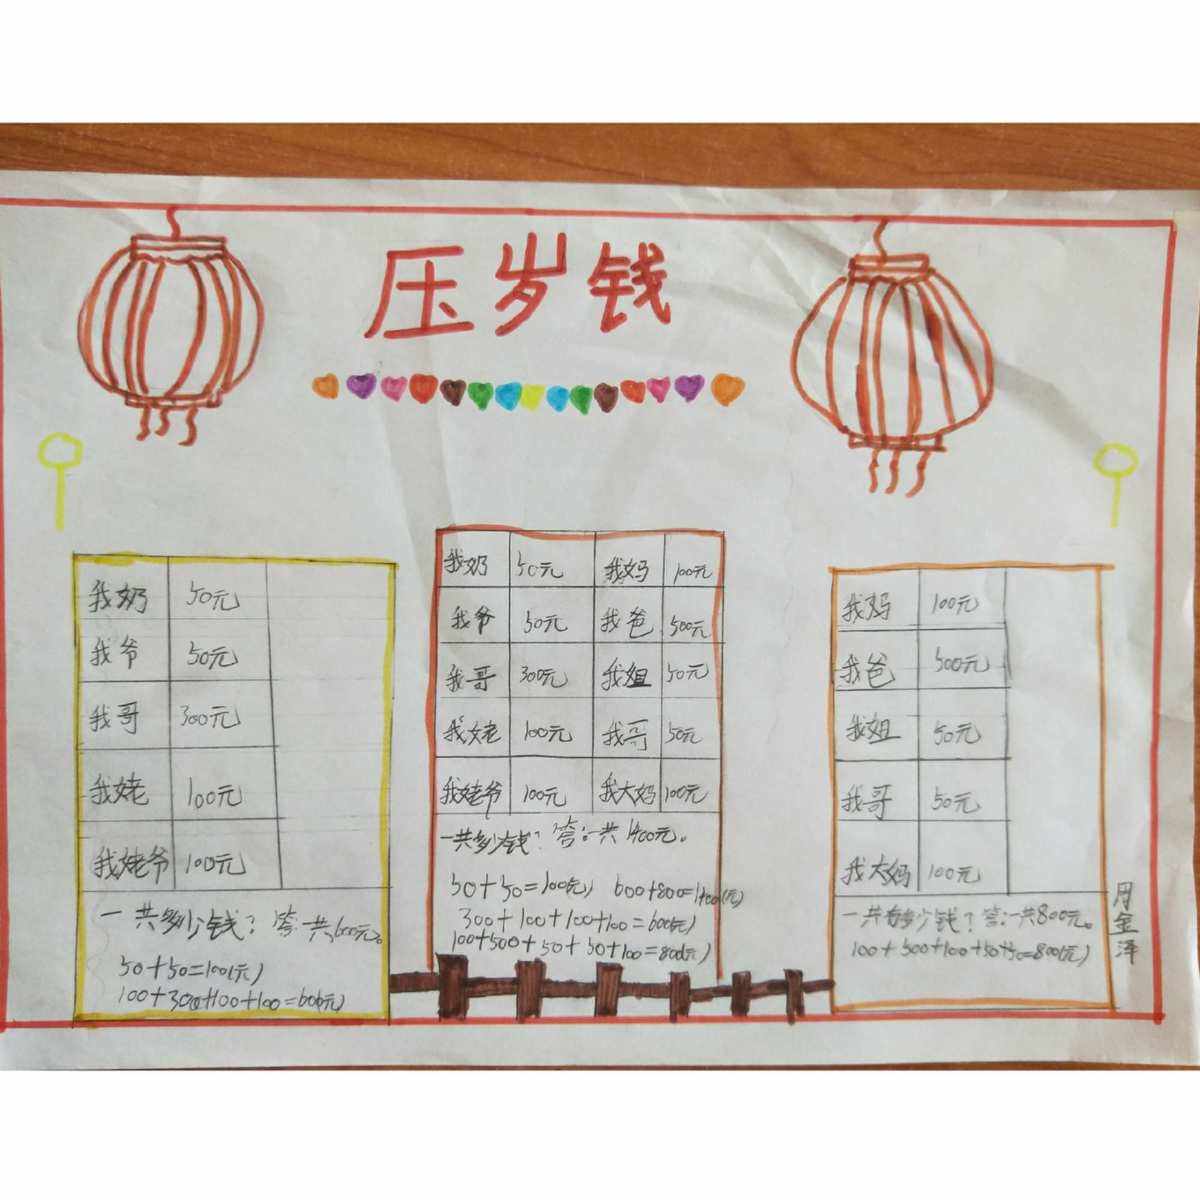 压岁钱
我奶 50元
我爷 50元
我哥 300元
我姥 100元
我姥爷 100元
一共多少钱？答：一共600元。
50+50=100(元)
100+300+100+100=600(元)
我奶 50元 我妈 100元
我爷 50元 我爸 500元
我哥 300元 我姐 50元
我姥 100元 我哥 50元
我姥爷 100元 我大妈 100元
一共多少钱？答：一共1400元。
50+50=100(元) 600+800=1400(元)
300+100+100+100=600(元)
100+500+50+50+100=800(元)
我妈 100元
我爸 500元
我姐 50元
我哥 50元
我大妈 100元
一共有多少钱？答：一共800元。
100+500+100+50+50=800(元)
金泽